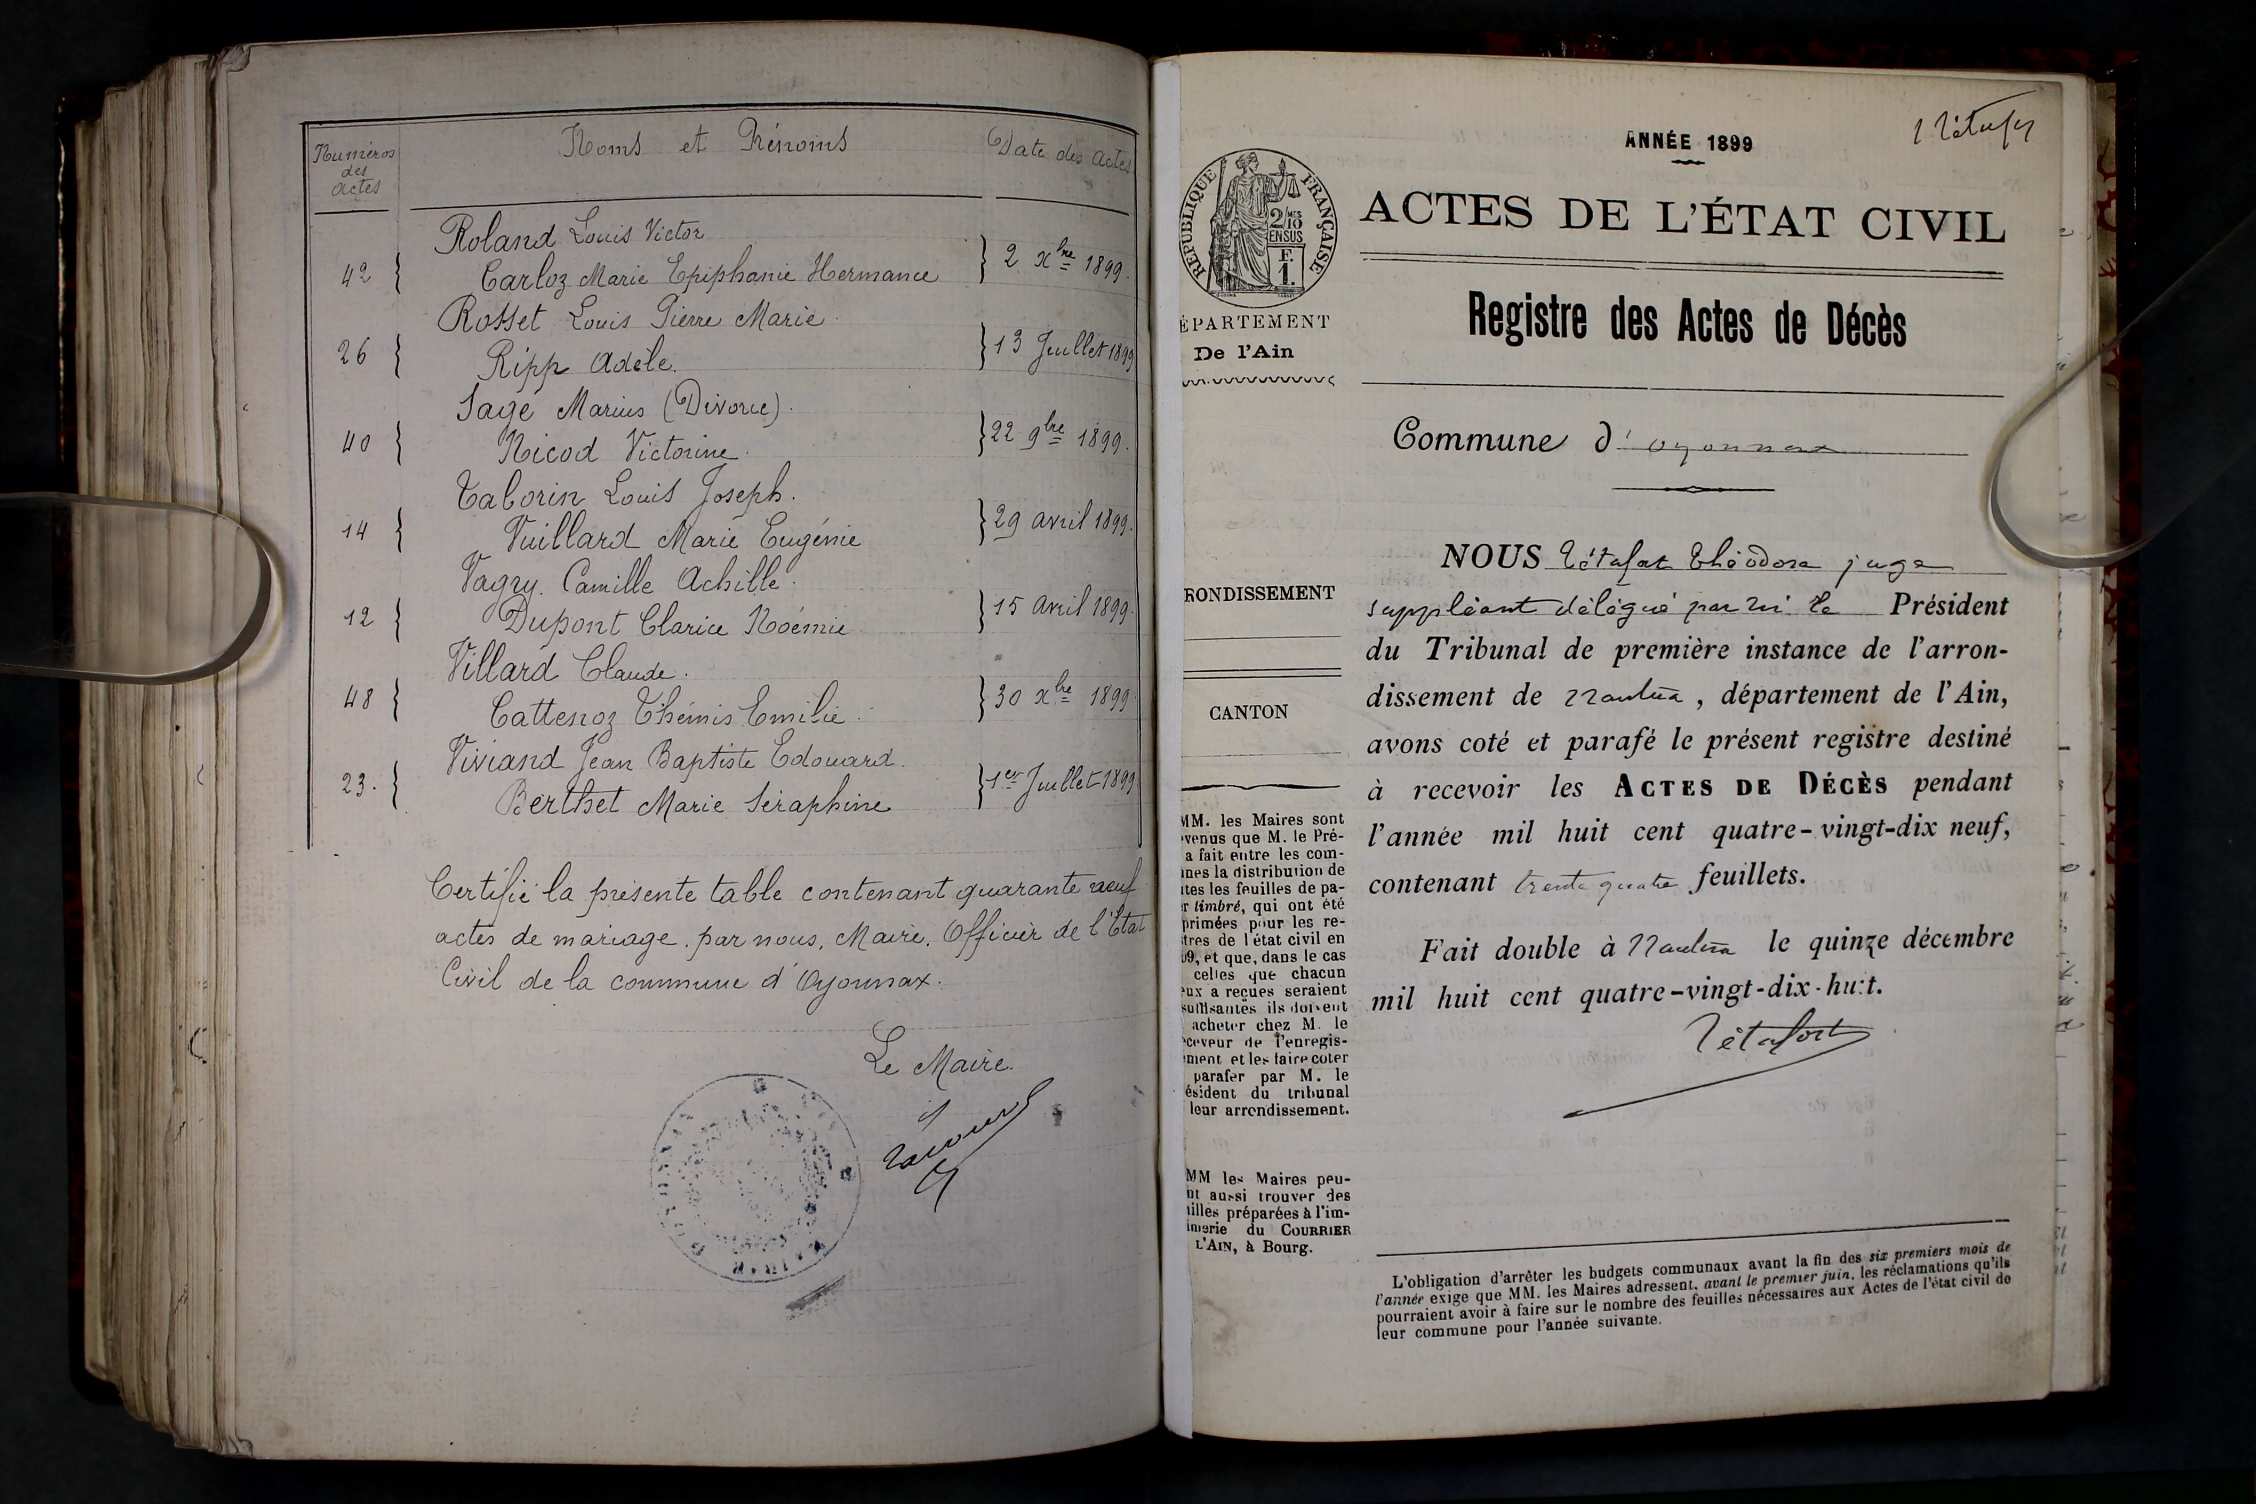 Numéros des actes
Noms et Prénoms
Date des actes
Roland Louis Victor
42 } Carloz Marie Epiphanie Hermance } 2 Xbre 1899.
Rosset Louis Pierre Marie
26 } Ripp Adèle. } 13 Juillet 1899
Sage Marius (Divorce).
40 } Nicod Victorine. } 22 9bre 1899.
Taborin Louis Joseph.
14 } Vuillard Marie Eugénie } 29 avril 1899.
Vagry Camille Achille.
12 } Dupont Clarice Noémie } 15 avril 1899.
Villard Claude.
48 } Cattenoz Thémis Emilie. } 30 Xbre 1899
Viviand Jean Baptiste Edouard.
23. } Berthet Marie Séraphine } 1er Juillet 1899
Certifié la présente table contenant quarante neuf
actes de mariage, par nous, Maire, Officier de l'Etat
Civil de la commune d'Oyonnax.
Le Maire.
ANNÉE 1899
RÉPUBLIQUE FRANÇAISE
2/10 MES
EN SUS
F.
1.
ACTES DE L'ÉTAT CIVIL
ÉPARTEMENT
De l'Ain
Registre des Actes de Décès
Commune d' oyonnax
RONDISSEMENT
CANTON
MM. les Maires sont
venus que M. le Pré-
a fait entre les com-
nes la distribution de
tes les feuilles de pa-
r timbré, qui ont été
primées pour les re-
tres de l'état civil en
9, et que, dans le cas
celles que chacun
eux a reçues seraient
suffisantes ils doivent
acheter chez M. le
ceveur de l'enregis-
ment et les faire coter
parafer par M. le
ésident du tribunal
leur arrondissement.
MM les Maires peu-
nt aussi trouver des
illes préparées à l'im-
imerie du COURRIER
L'AIN, à Bourg.
NOUS Tétafort Théodore juge
suppléant délégué par Mr le Président
du Tribunal de première instance de l'arron-
dissement de Nantua, département de l'Ain,
avons coté et parafé le présent registre destiné
à recevoir les ACTES DE DÉCÈS pendant
l'année mil huit cent quatre-vingt-dix neuf,
contenant trente quatre feuillets.
Fait double à Nantua le quinze décembre
mil huit cent quatre-vingt-dix-huit.
Tétafort
L'obligation d'arrêter les budgets communaux avant la fin des six premiers mois de
l'année exige que MM. les Maires adressent, avant le premier juin, les réclamations qu'ils
pourraient avoir à faire sur le nombre des feuilles nécessaires aux Actes de l'état civil de
leur commune pour l'année suivante.